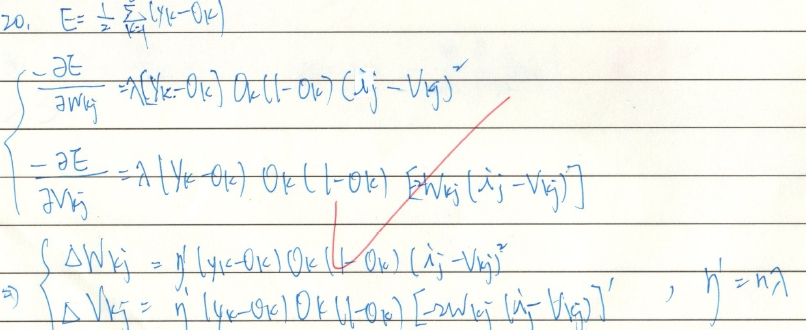 20. E = 1/2 Σ k=1 (yk - Ok)
{ -∂E/∂Wkj = λ(yk - Ok) Ok(1 - Ok) (ij - Vkj)²
-∂E/∂Vkj = λ(yk - Ok) Ok(1 - Ok) [-2Wkj (ij - Vkj)]
⇒ { ΔWkj = η'(yk - Ok) Ok(1 - Ok) (ij - Vkj)²
ΔVkj = η'(yk - Ok) Ok(1 - Ok) [-2Wkj (ij - Vkj)]' , η' = ηλ